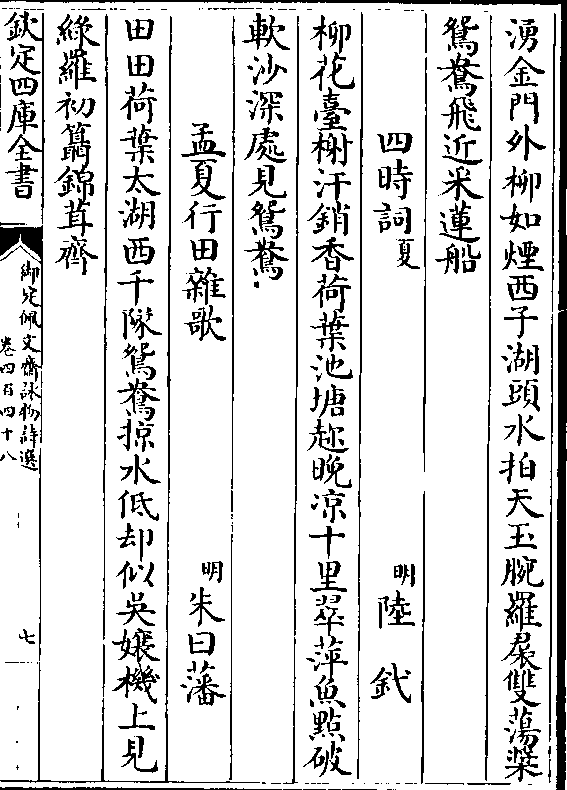 湧金門外柳如煙西子湖頭水拍天玉腕羅裙雙蕩槳
鴛鴦飛近采蓮船
四時詞夏　明陸釴
柳花臺榭汗銷香荷葉池塘趂晚凉十里翠萍魚點破
軟沙深處見鴛鴦
孟夏行田雜歌　明朱曰藩
田田荷葉太湖西千隊鴛鴦掠水低却似吳孃機上見
綠羅初簉錦茸齊
欽定四庫全書
御定佩文齋詠物詩選
卷四百四十八
七